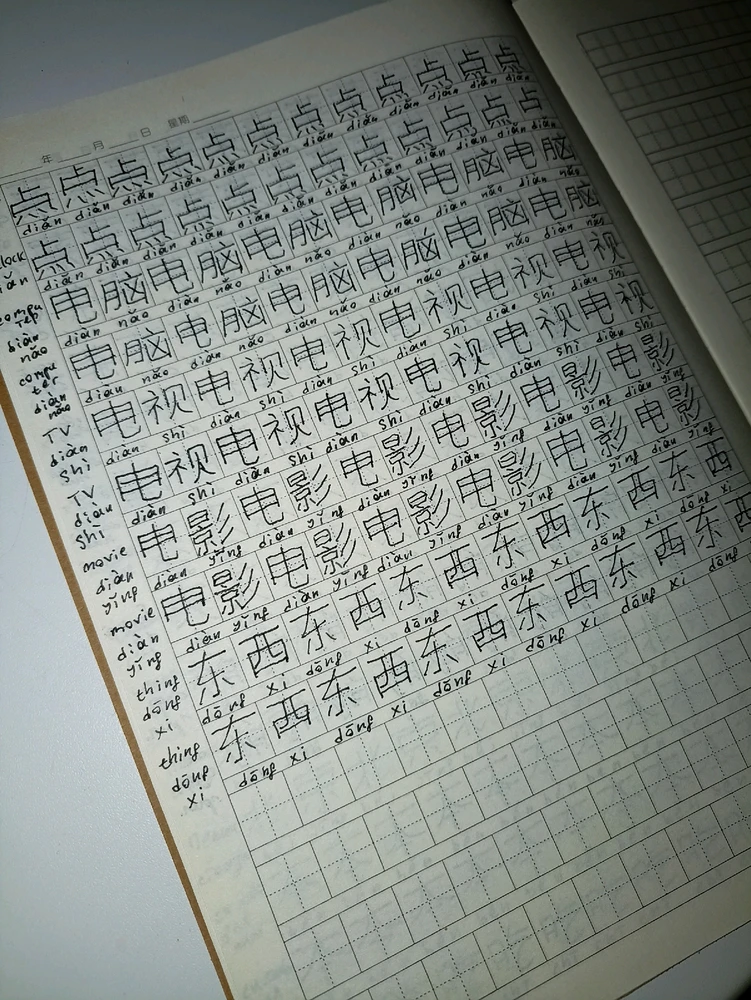 年 月 日 星期
点 点 点 点 点 点 点 点 点 点 点 点
diǎn diǎn diǎn diǎn diǎn diǎn diǎn diǎn diǎn diǎn diǎn diǎn
lock
ǎn
点 点 点 点 点 点 点 点 点 点 点 点
diǎn diǎn diǎn diǎn diǎn diǎn diǎn diǎn diǎn diǎn
compu
ter
diàn
nǎo
电 脑 电 脑 电 脑 电 脑 电 脑 电 脑
diàn nǎo diàn nǎo diàn nǎo diàn nǎo diàn nǎo
compu
ter
diàn
nǎo
电 脑 电 脑 电 脑 电 脑 电 脑 电 脑
diàn nǎo diàn nǎo diàn nǎo diàn nǎo diàn nǎo diàn nǎo
TV
diàn
shì
电 视 电 视 电 视 电 视 电 视 电 视
diàn shì diàn shì diàn shì diàn shì diàn shì diàn shì
TV
diàn
shì
电 视 电 视 电 视 电 视 电 视 电 视
diàn shì diàn shì diàn shì diàn shì diàn shì diàn shì
movie
diàn
yǐng
电 影 电 影 电 影 电 影 电 影 电 影
diàn yǐng diàn yǐng diàn yǐng diàn yǐng diàn yǐng diàn yǐng
movie
diàn
yǐng
电 影 电 影 电 影 电 影 电 影 电 影
diàn yǐng diàn yǐng diàn yǐng diàn yǐng diàn yǐng diàn yǐng
thing
dōng
xi
东 西 东 西 东 西 东 西 东 西 东 西
dōng xi dōng xi dōng xi dōng xi dōng xi dōng xi
thing
dōng
xi
东 西 东 西 东 西 东 西 东 西 东 西
dōng xi dōng xi dōng xi dōng xi dōng xi dōng